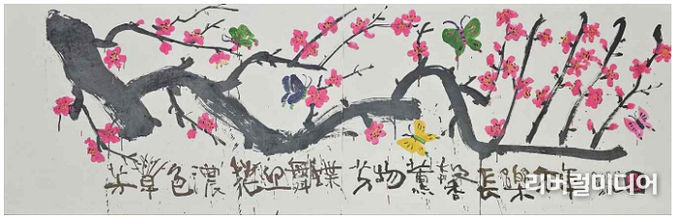 芳草色濃 迎舞蝶 芳物薰馨 長樂
리버럴미디어